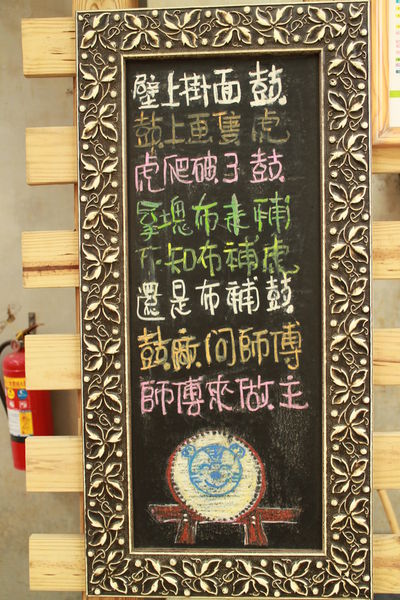 壁上掛面鼓
鼓上画隻虎
虎爬破了鼓
拿塊布來補
不知布補虎
還是布補鼓
鼓廠问師傅
師傅來做主